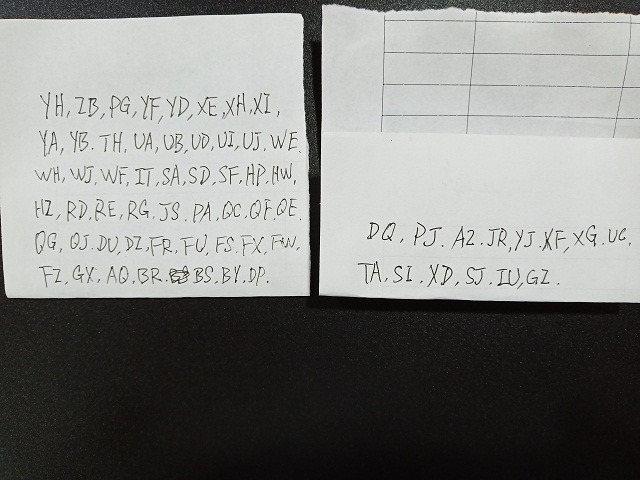 YH, ZB, PG, YF, YD, XE, XH, XI,
YA, YB. TH, UA, UB, UD, UI, UJ. WE.
WH, WJ. WF, IT, SA, SD, SF, HP, HW,
HZ, RD, RE, RG. JS. PA, QC, QF, QE.
QG, QJ. DU, DZ, FR, FU, FS. FX, FW,
FZ, GX, AQ, BR. BS, BY, DP.
DQ, PJ. AZ. JR, YJ. XF, XG. UC,
TA, SI. XD, SJ. IU, GZ.